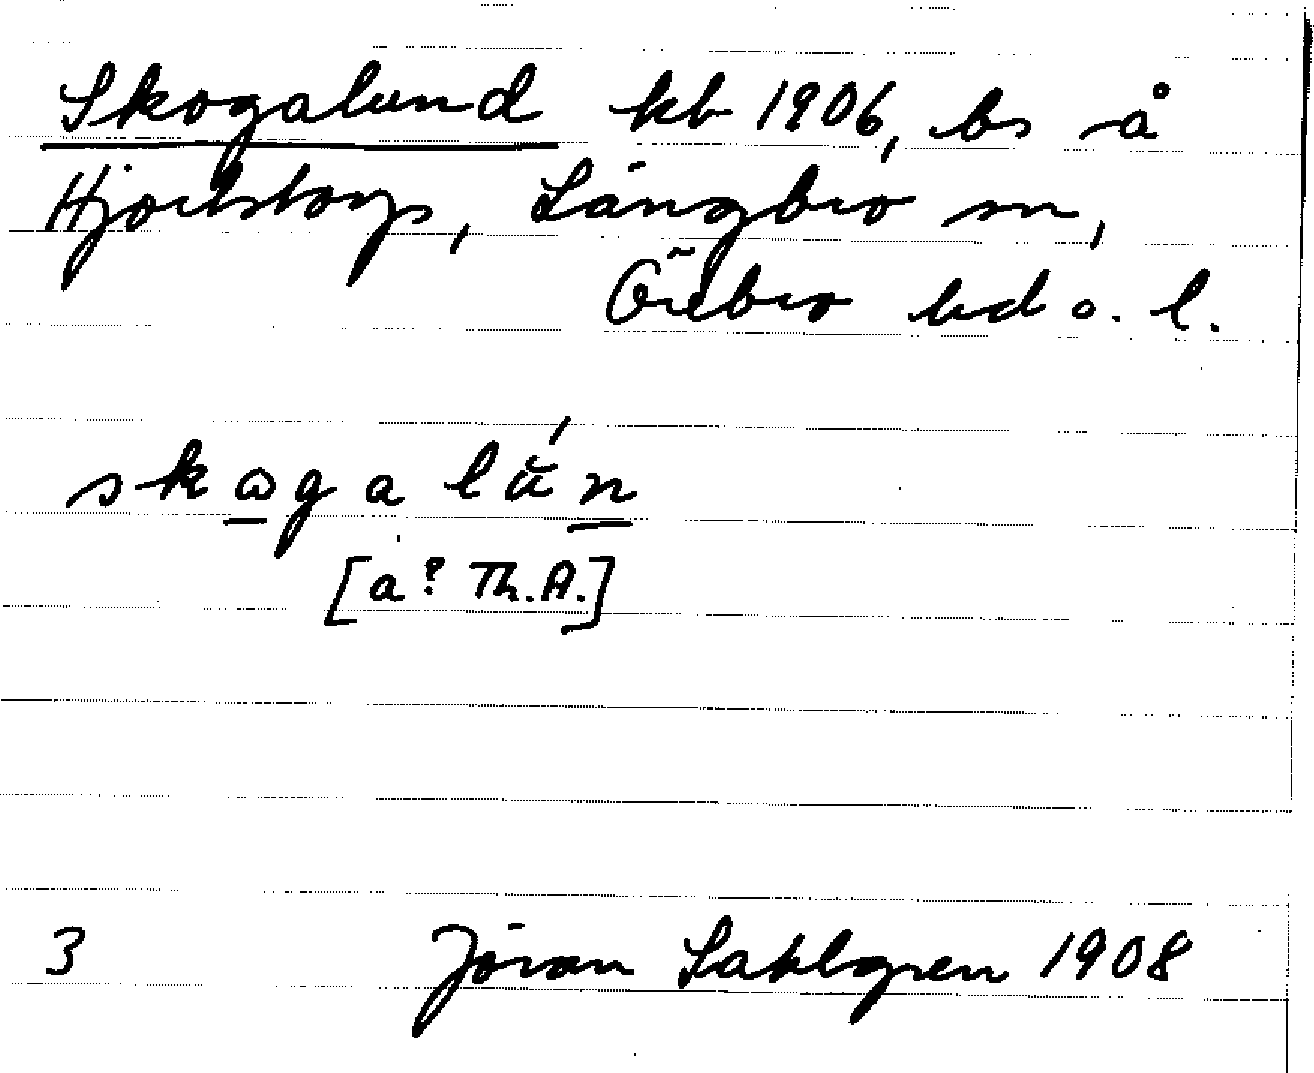 Skogalund kb 1906, bs å
Hjortstorp, Längbro sn,
Örebro hd o. l.
skωgalú̆n
[a? Th.A.]
3 Jöran Sahlgren 1908